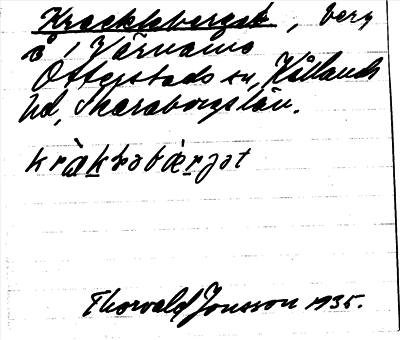 Krackleberget, berg
å i Värnains
Otterstads sn, Kållands
hd, Skaraborgs län.
kràkkəbǽrjət
Thorvald Jonsson 1935.